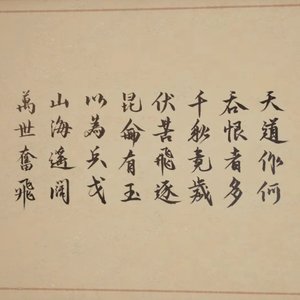 天道作何
吞恨者多
千秋竟歲
伏莽飛逐
昆侖有玉
以為兵戈
山海遙闊
萬世奮飛